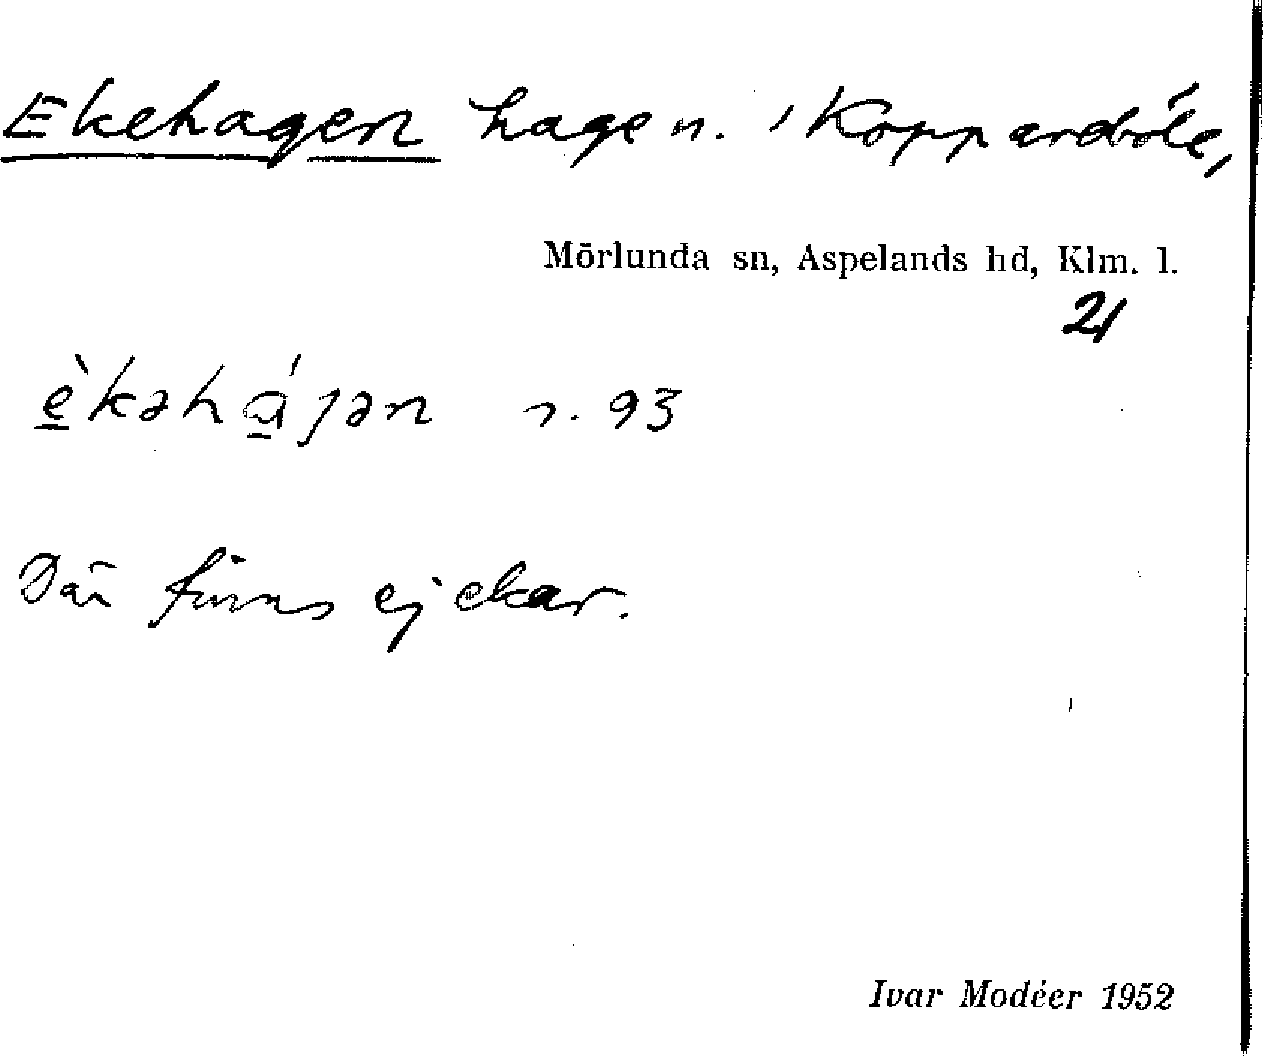 Ekehagen hage n. i Kopparebole,
Mörlunda sn, Aspelands hd, Klm. l.
21
è̱kəhá̱jən n. 93
Där finns ej ekar.
Ivar Modéer 1952